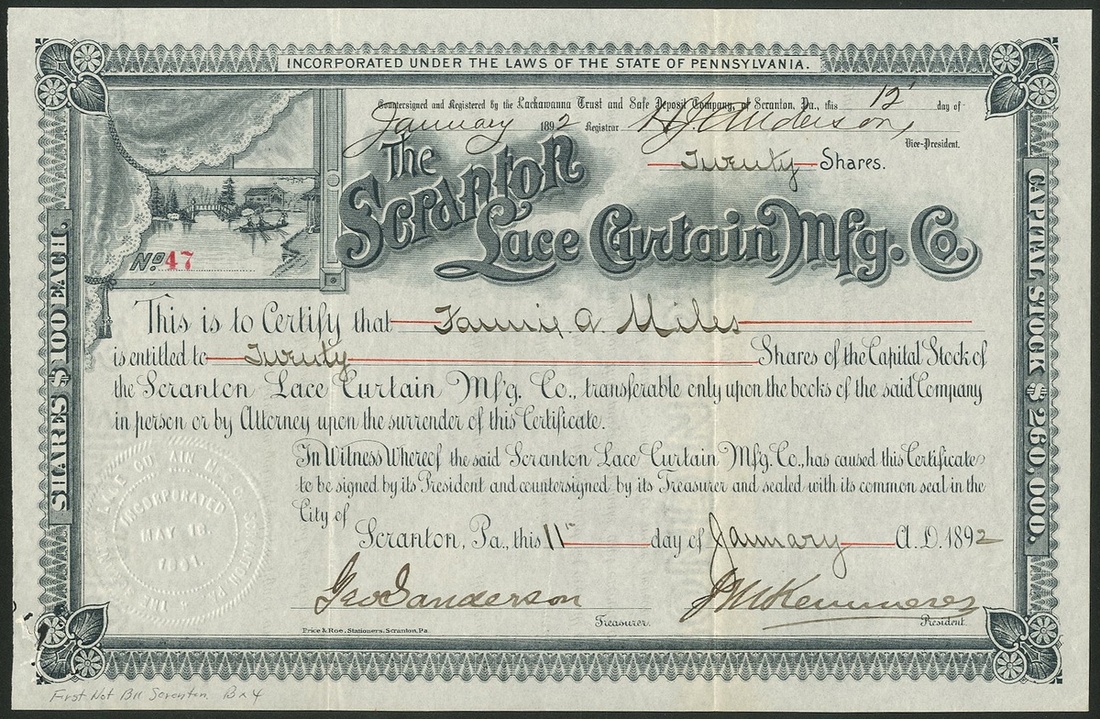 INCORPORATED UNDER THE LAWS OF THE STATE OF PENNSYLVANIA.
Countersigned and Registered by the Lackawanna Trust and Safe Deposit Company, of Scranton, Pa., this 12 day of
January 1892 Registrar H.J. Anderson,
Vice-President.
Twenty Shares.
The
Scranton
Lace Curtain Mfg. Co.
No. 47
SHARES $100 EACH
CAPITAL STOCK $260,000.
This is to Certify that Fannie A. Miles
is entitled to Twenty Shares of the Capital Stock of
the Scranton Lace Curtain Mfg. Co., transferable only upon the books of the said Company
in person or by Attorney upon the surrender of this Certificate.
In Witness Whereof the said Scranton Lace Curtain Mfg. Co., has caused this Certificate
to be signed by its President and countersigned by its Treasurer and sealed with its common seal in the
City of
Scranton, Pa., this 11th day of January A.D. 1892
INCORPORATED
MAY 18.
1891.
Geo Sanderson
Treasurer.
J M Kemmerer
President.
Price & Roe, Stationers, Scranton, Pa.
First Nat Bk Scranton. Bx 4